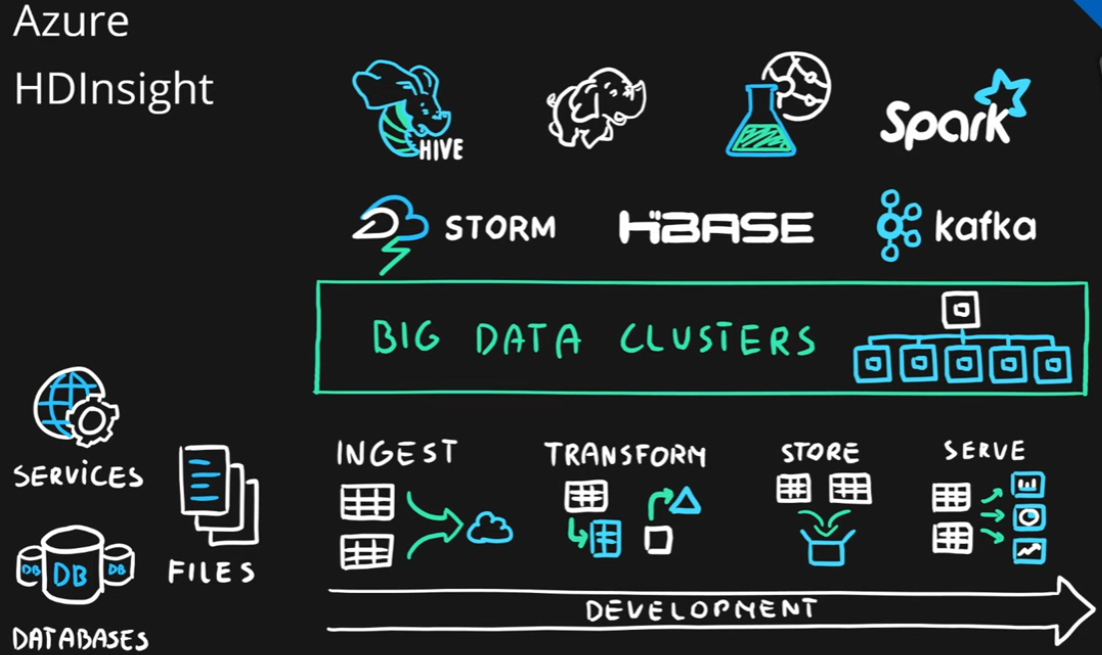 Azure
HDInsight
HIVE
Spark
STORM
HBASE
kafka
BIG DATA CLUSTERS
SERVICES
FILES
DB DB DB
DATABASES
INGEST
TRANSFORM
STORE
SERVE
DEVELOPMENT